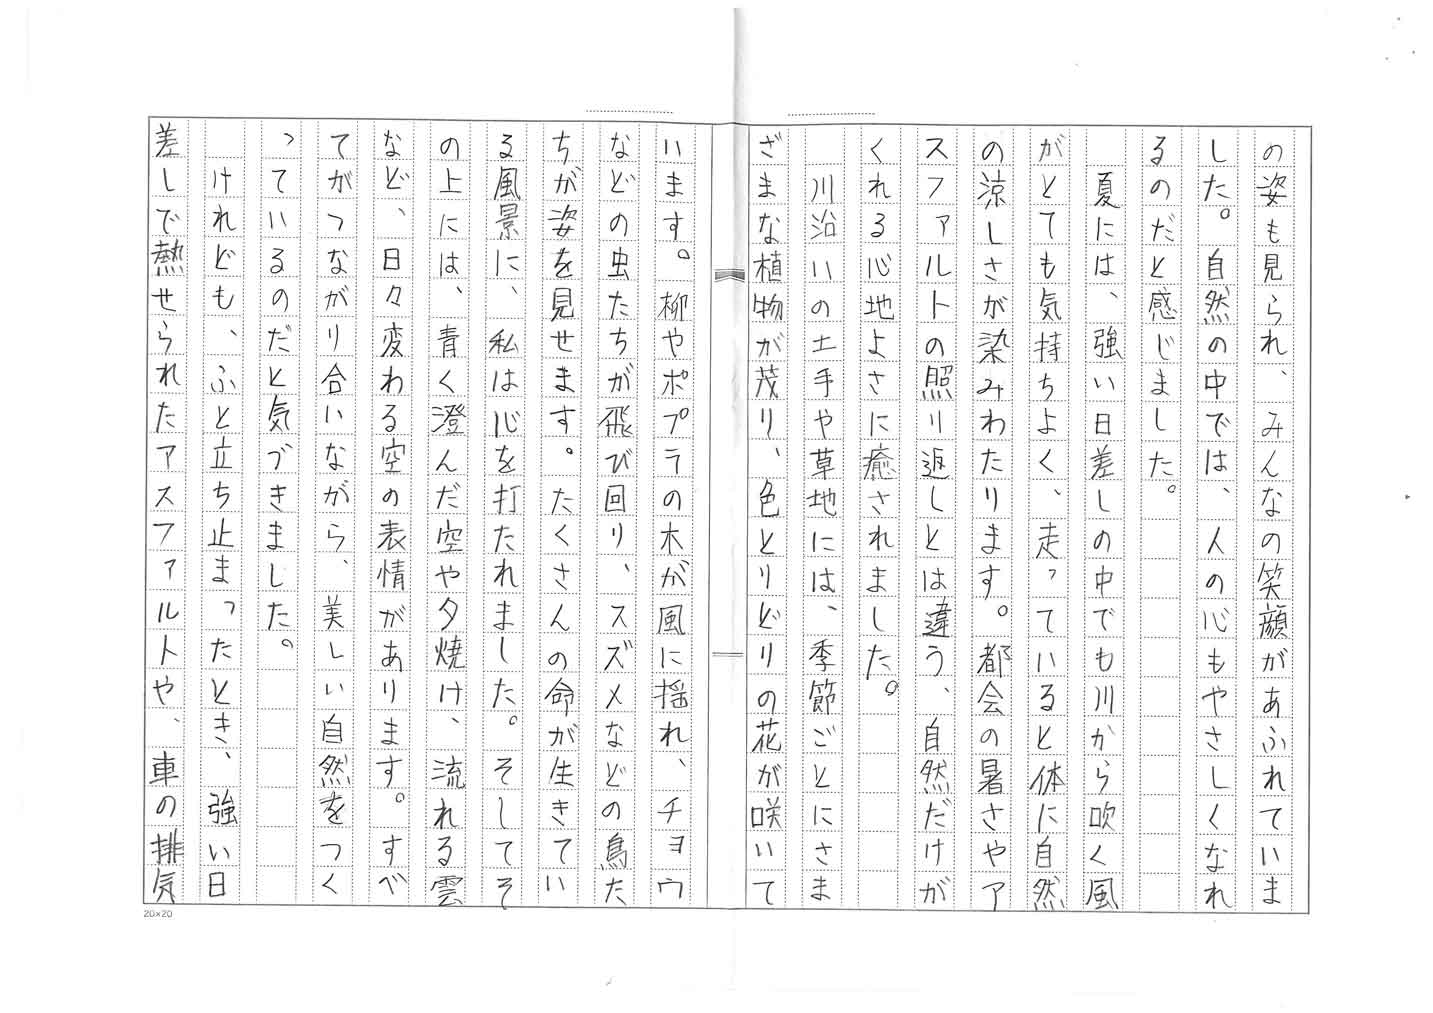 の姿も見られ、みんなの笑顔があふれていま
した。自然の中では、人の心もやさしくなれ
るのだと感じました。
夏には、強い日差しの中でも川から吹く風
がとても気持ちよく、走っていると体に自然
の涼しさが染みわたります。都会の暑さやア
スファルトの照り返しとは違う、自然だけが
くれる心地よさに癒されました。
川沿いの土手や草地には、季節ごとにさま
ざまな植物が茂り、色とりどりの花が咲いて
います。柳やポプラの木が風に揺れ、チョウ
などの虫たちが飛び回り、スズメなどの鳥た
ちが姿を見せます。たくさんの命が生きてい
る風景に、私は心を打たれました。そしてそ
の上には、青く澄んだ空や夕焼け、流れる雲
など、日々変わる空の表情があります。すべ
てがつながり合いながら、美しい自然をつく
っているのだと気づきました。
けれども、ふと立ち止まったとき、強い日
差しで熱せられたアスファルトや、車の排気
20×20